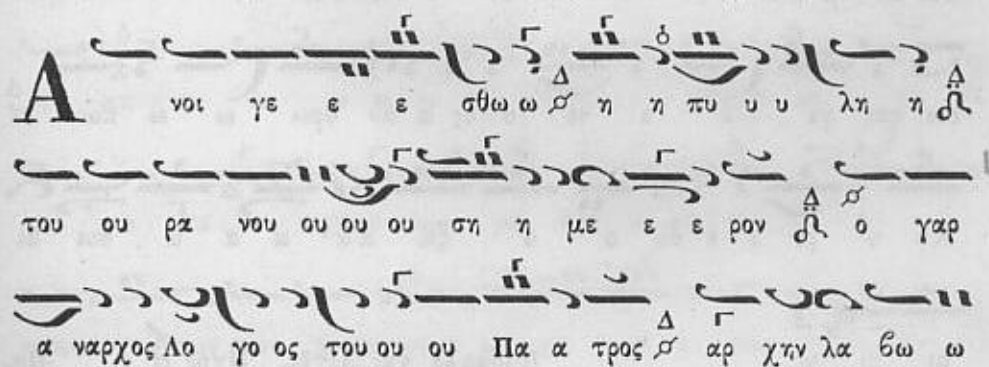 Α νοι γε ε ε σθω ω Δ η η πυ υ υ λη η Δ
του ου ρα νου ου ου ου ση η με ε ε ρον Δ ο γαρ
α ναρχος Λο γο ος του ου ου Πα α τρος Δ αρ χην λα βω ω